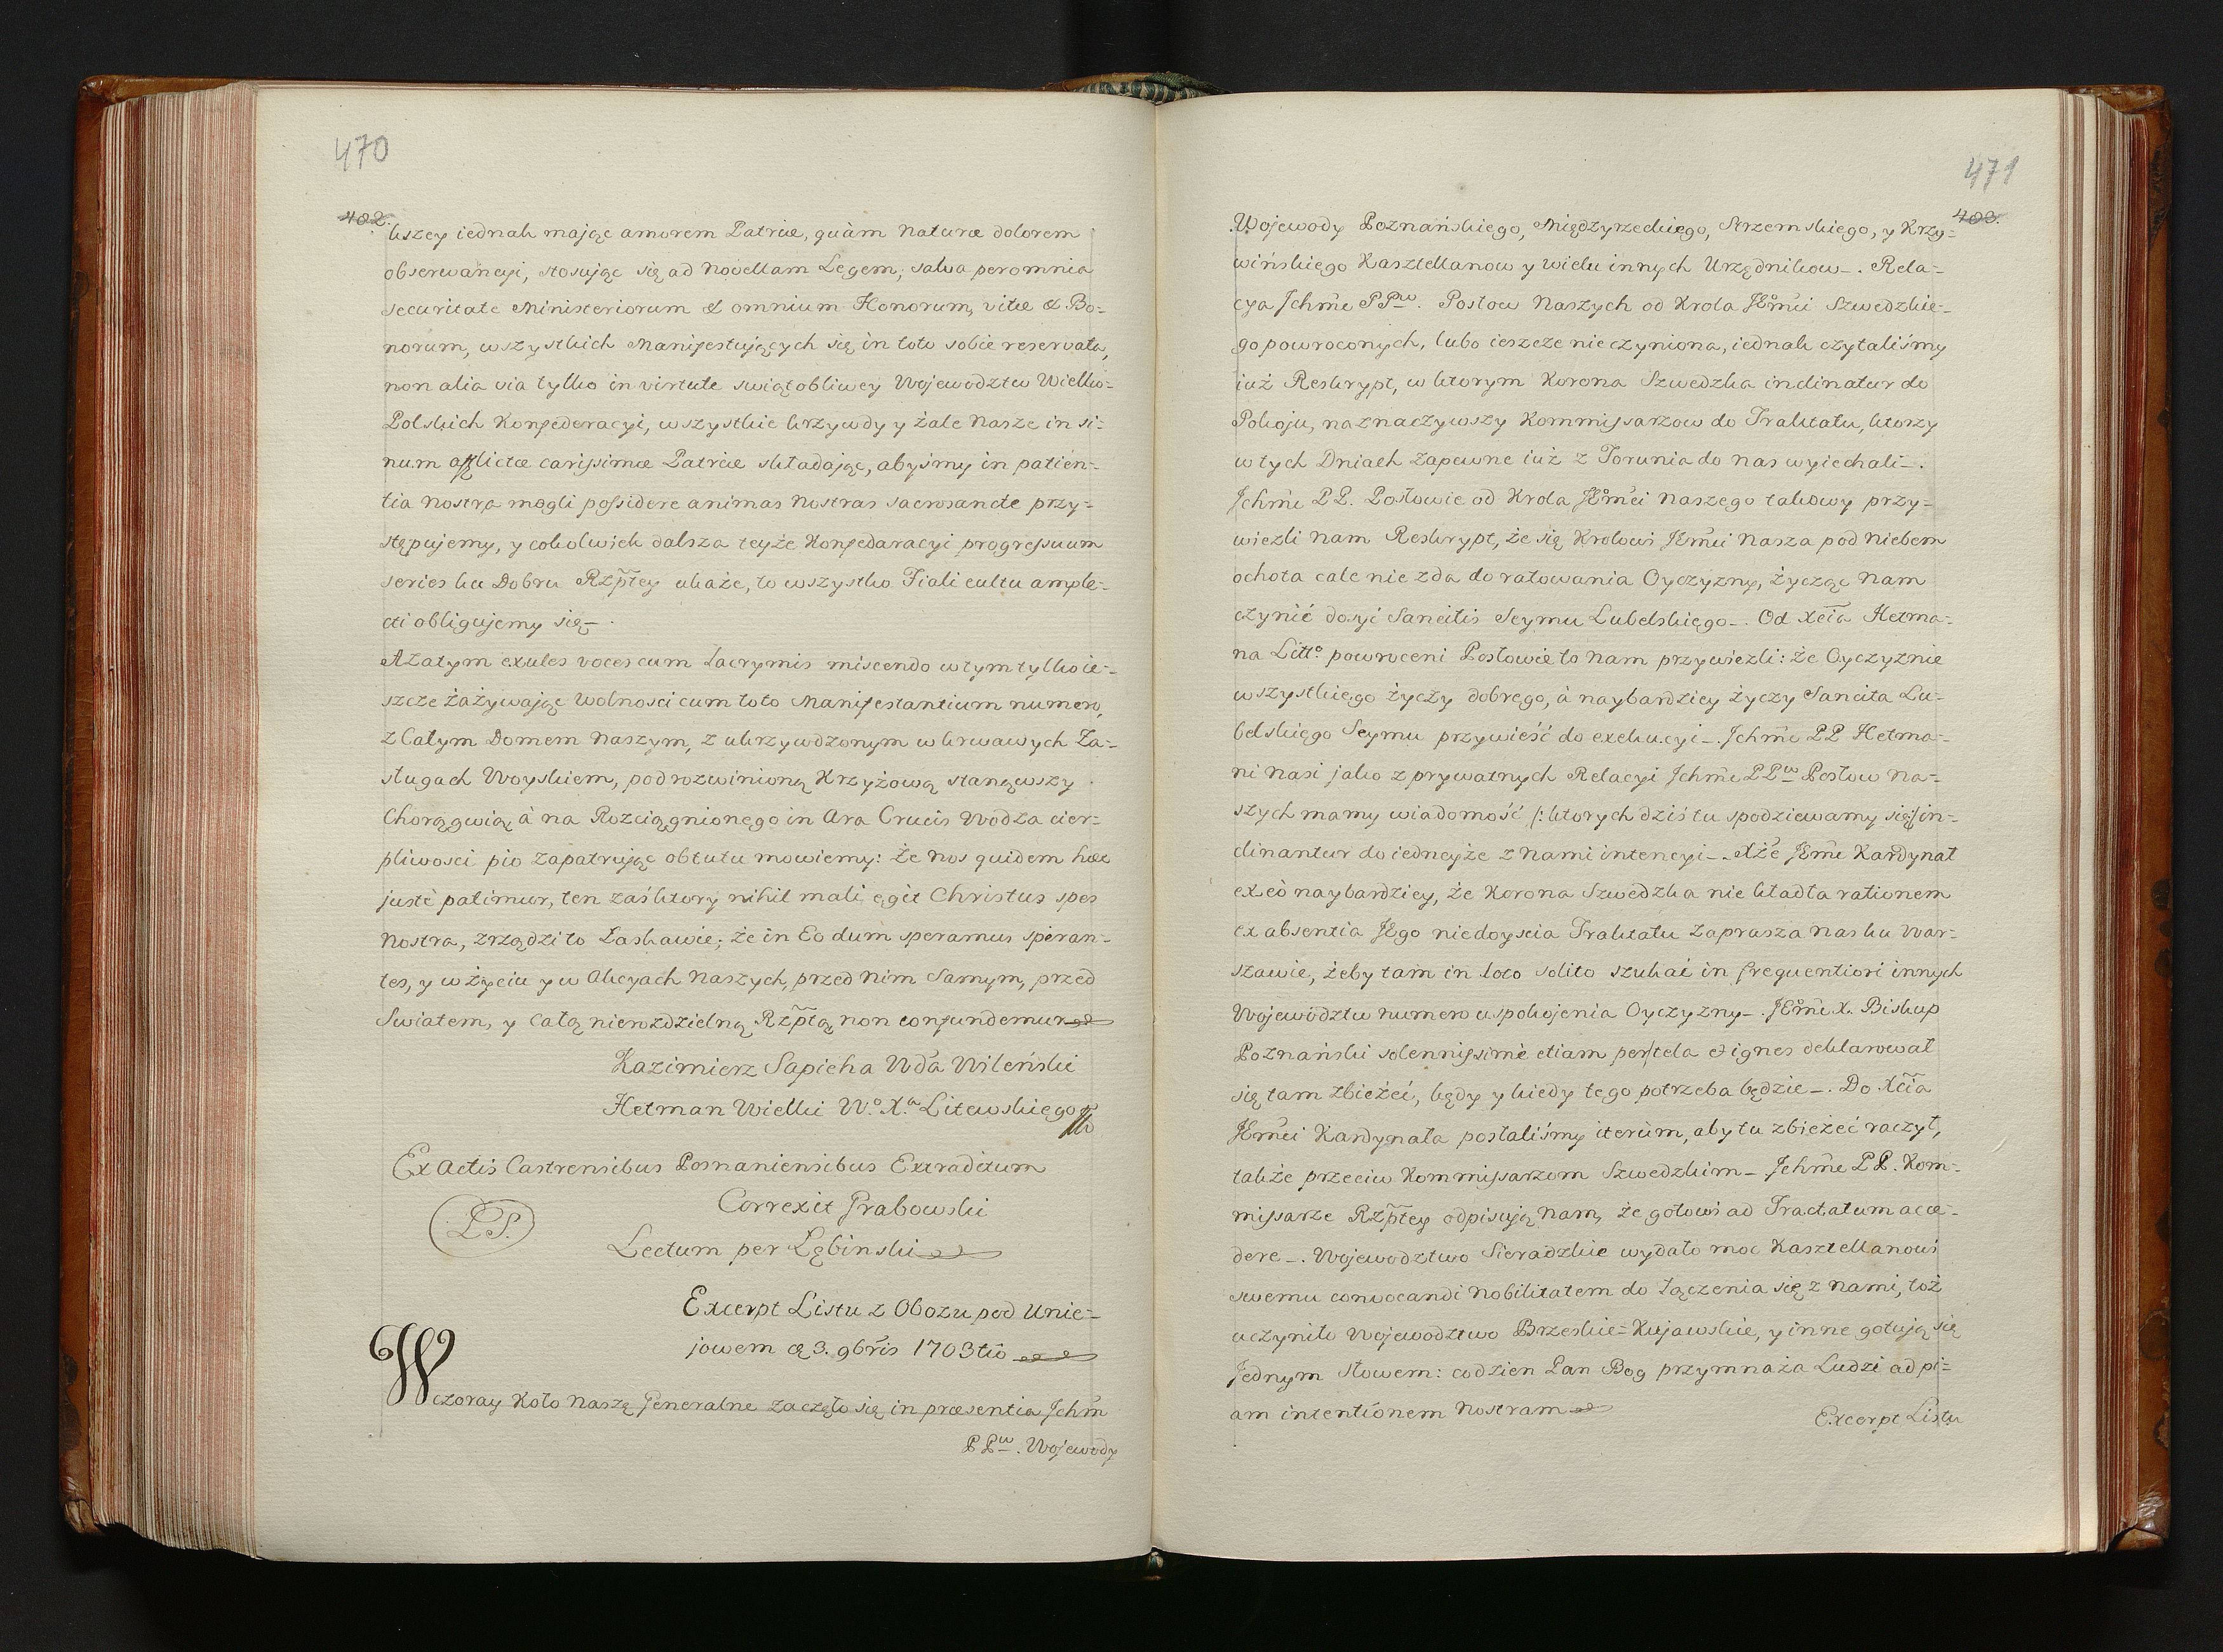 470
402.
kszey iednak mając amorem Patriæ, quàm naturæ dolorem
obserwancyi, stosując się ad novellam Legem, salva per omnia
securitate Ministeriorum & omnium Honorum, vitæ & Bo=
norum, wszystkich Manifestujących się in toto sobie reservata,
non alia via tylko in virtute swiątobliwey Wojewodztw Wielko=
Polskich Konfederacyi, wszystkie krzywdy y żale Nasze in si=
num afflictæ carissimæ Patriæ składając, abyśmy in patien=
tia nostra mogli possidere animas nostras sacrosancte przy=
stępujemy, y cokolwiek dalsza teyże Konfedaracyi progressuum
series ku Dobru Rzptey ukaże, to wszystko Fiali cultu ample=
cti obligujemy się.
A zatym exules voces cum lacrymis miscendo w tym tylko ie=
szcze zażywając wolnosci cum toto Manifestantium numero,
z Całym Domem Naszym, z ukrzywdzonym w krwawych Za=
sługach Woyskiem, pod rozwinioną Krzyżową stanąwszy
Chorągwią à na Rozciągnionego in Ara Crucis Wodza cier=
pliwosci pio zapatrując obtutu mowiemy: Że nos quidem hæc
justè patimur, ten zaś ktory nihil mali egit Christus spes
Nostra, zrządzi to Łaskawie; że in Eo dum speramus speran=
tes, y w życiu y w Akcyach Naszych, przed Nim Samym, przed
Swiatem, y całą nierozdzielną Rzptą non confundemur
Kazimierz Sapieha Wda Wileński
Hetman Wielki W.º X.ª Litewskiego
Ex Actis Castrensibus Posnaniensibus Extraditum
L S.
Correxit Grabowski
Lectum per Łębinski
Excerpt Listu z Obozu pod Unie=
jowem 3. 9bris 1703tio
Wczoray Koło Naszę Generalne zaczęło się in præsentia Jchm
PPw. Wojewody
471
402.
Wojewody Poznańskiego, Międzyrzeckiego, Strzemskiego, y Krzy=
wińskiego Kasztellanow y wielu innych Urzędnikow. Rela=
cya Jchme PPw. Posłow Naszych od Krola JEmci Szwedzkie=
go powroconych, lubo ieszcze nie czyniona, iednak czytaliśmy
iuż Reskrypt, w ktorym Korona Szwedzka inclinatur do
Pokoju, naznaczywszy Kommissarzow do Traktatu, ktorzy
w tych Dniach zapewne iuż z Torunia do nas wyiechali.
Jchme PP. Posłowie od Krola JEmci Naszego takowy przy=
wiezli nam Reskrypt, że się Krolowi JEmci Nasza pod niebem
ochota cale nie zda do ratowania Oyczyzny, życząc Nam
czynić dosyć Sancitis Seymu Lubelskiego. Od Xcia Hetma=
na Littº powroceni Posłowie to nam przywiezli: że Oyczyznie
wszystkiego życzy dobrego, à naybardziey życzy Sancita Lu=
belskiego Seymu przywieść do exekucyi. Jchme PP Hetma=
ni Nasi jako z prywatnych Relacyi Jchme PPw Posłow Na=
szych mamy wiadomość /: ktorych dziś tu spodziewamy się :/ in=
clinantur do iedneyże z Nami intencyi. A że JEme Kardynał
ex eò naybardziey, że Korona Szwedzka nie kładła rationem
ex absentia JEgo niedoyscia Traktatu zaprasza nas ku War=
szawie, żeby tam in loco solito szukać in frequentiori innych
Wojewodztw numero uspokojenia Oyczyzny. JEme X. Biskup
Poznański solennissimè etiam per tela & ignes deklarował
się tam zbieżeć, kędy y kiedy tego potrzeba będzie. Do Xcia
JEmci Kardynała posłaliśmy iterùm, aby tu zbieżeć raczył,
także przeciw Kommissarzom Szwedzkim Jchme PP. Kom=
missarze Rzptey odpisują nam, że gotowi ad Tractatum acce=
dere. Wojewodztwo Sieradzkie wydało moc Kasztellanowi
swemu convocandi nobilitatem do łączenia się z nami, toż
uczyniło Wojewodztwo Brzeskie=Kujawskie, y inne gotują się
Jednym słowem: codzien Pan Bog przymnaża Ludzi ad pi=
am intentionem nostram
Excerpt Listu